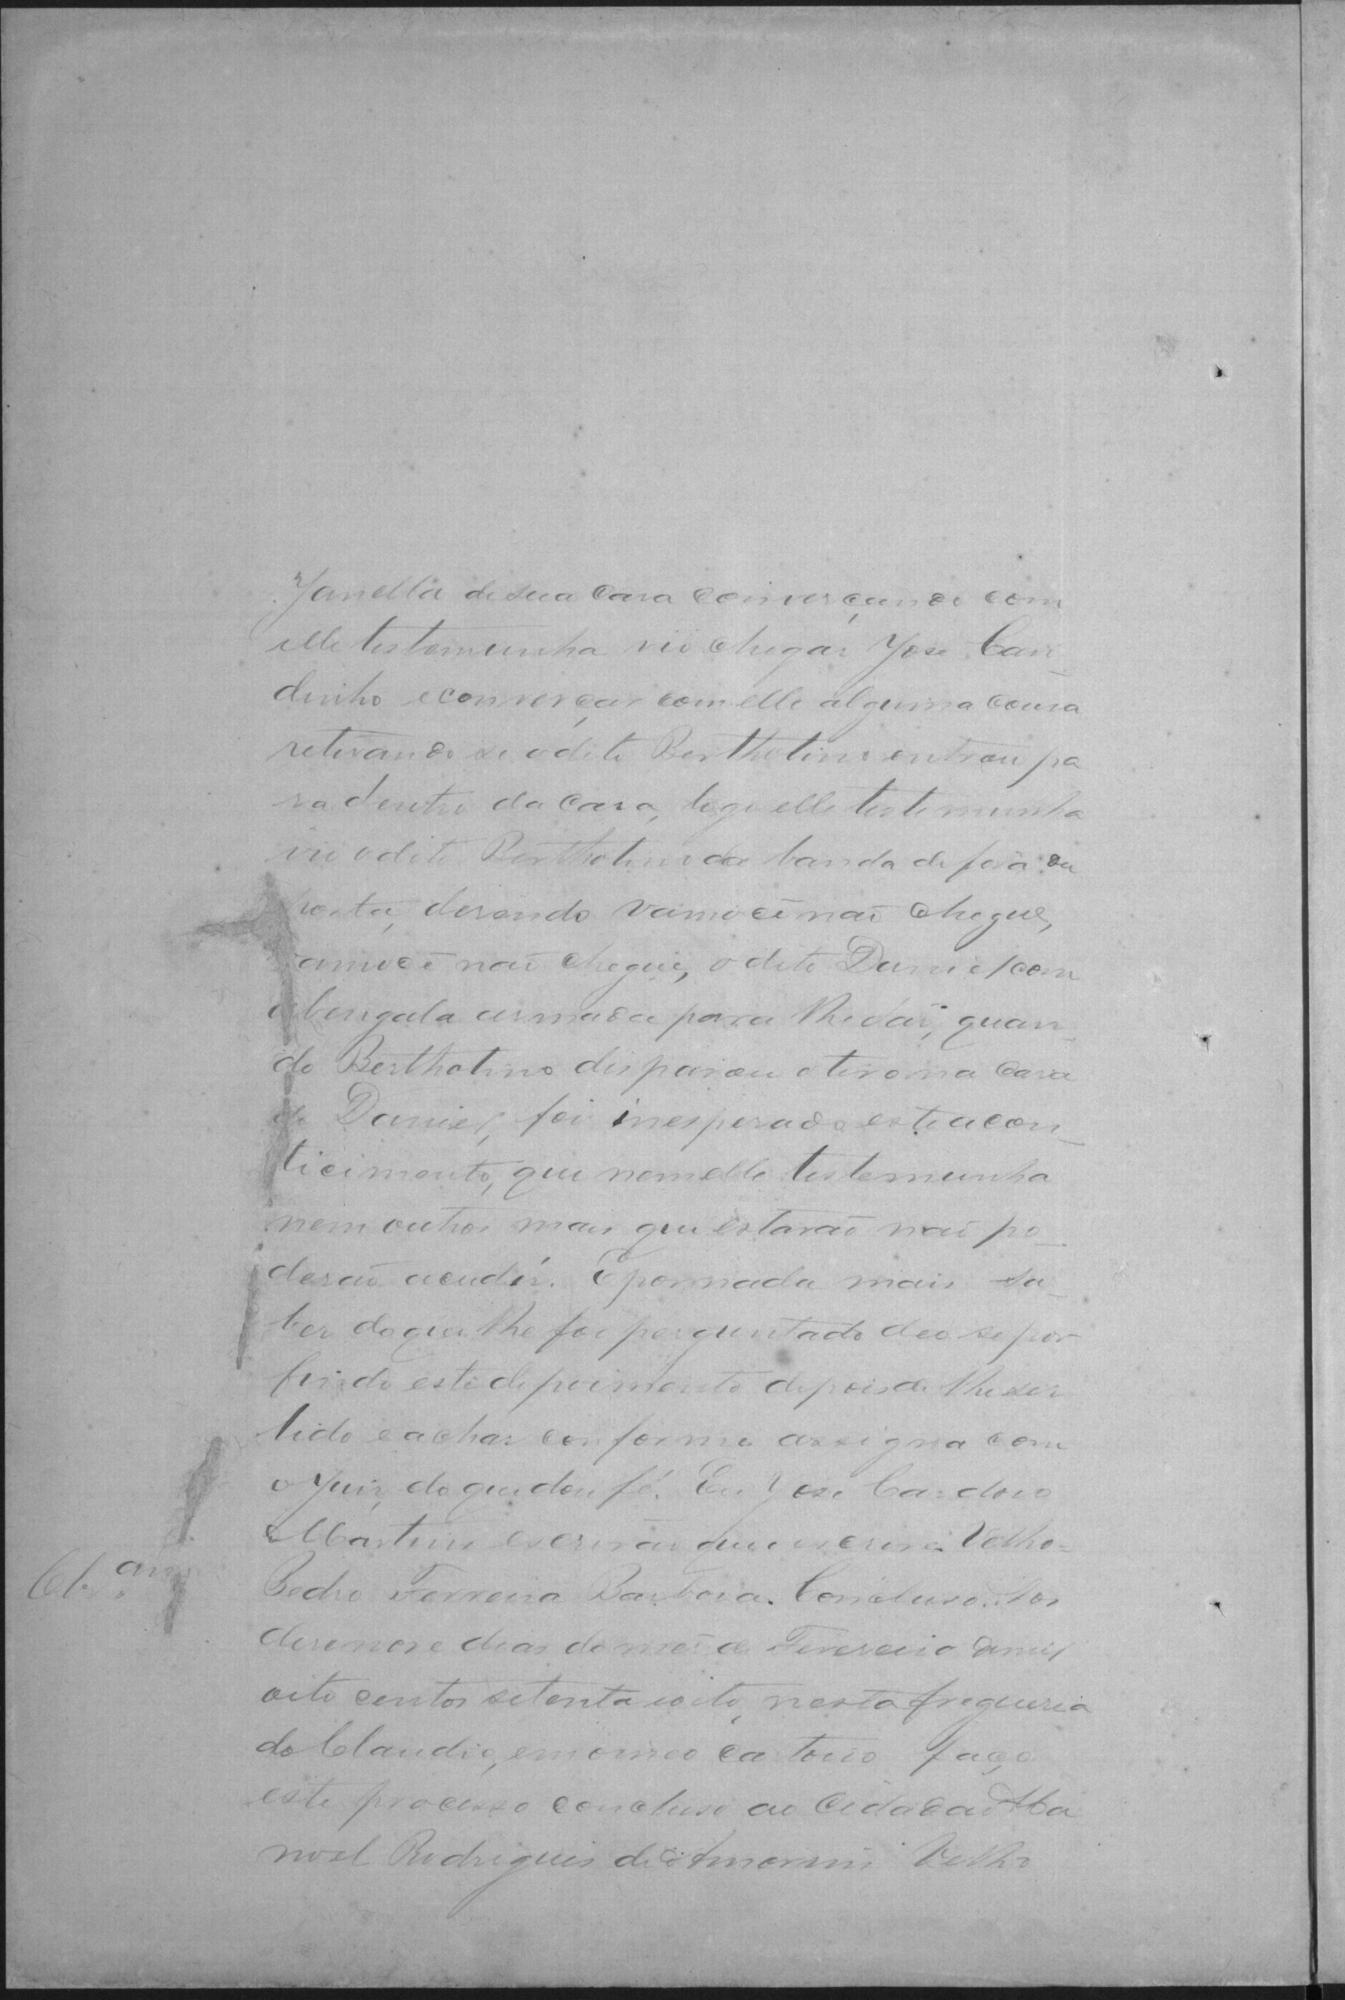 Janella de sua casa converçando com
elle testemunha vio chegar Jose Car-
dinho e converçar com elle alguma cousa
retirando se o dito Bertholino entrou pa
ra dentro da casa, logo elle testemunha
vio o dito Bertholino da banda de fora da
porta, dizendo vamoce não chegue,
vamoce não chegue, o dito Daniel com
a bengala armada para lhe dar, quan-
do Bertholino disparou o tiro na cara
de Daniel, foi inesperado este acon-
ticimento, que nem elle testemunha
nem outros mais que estavão não po-
derão acudir. E por nada mais sa-
ber do que lhe foi perguntado deo se por
findo este depoimento depois de lhe ser
lido e achar conforme assigna com
o Juiz do que dou fé. Eu Jose Cardoso
Martins escrivão que escrevi. Velho=
Pedro Ferreira Barbosa. Concluso. Aos
desenove dias do mes de Fevereiro de mil
oito centos setenta e oito, nesta freguesia
do Claudio, em o meo cartorio faço
este processo concluso ao Cidadão Ma
noel Rodrigues de Amorim Velho
Cl.am